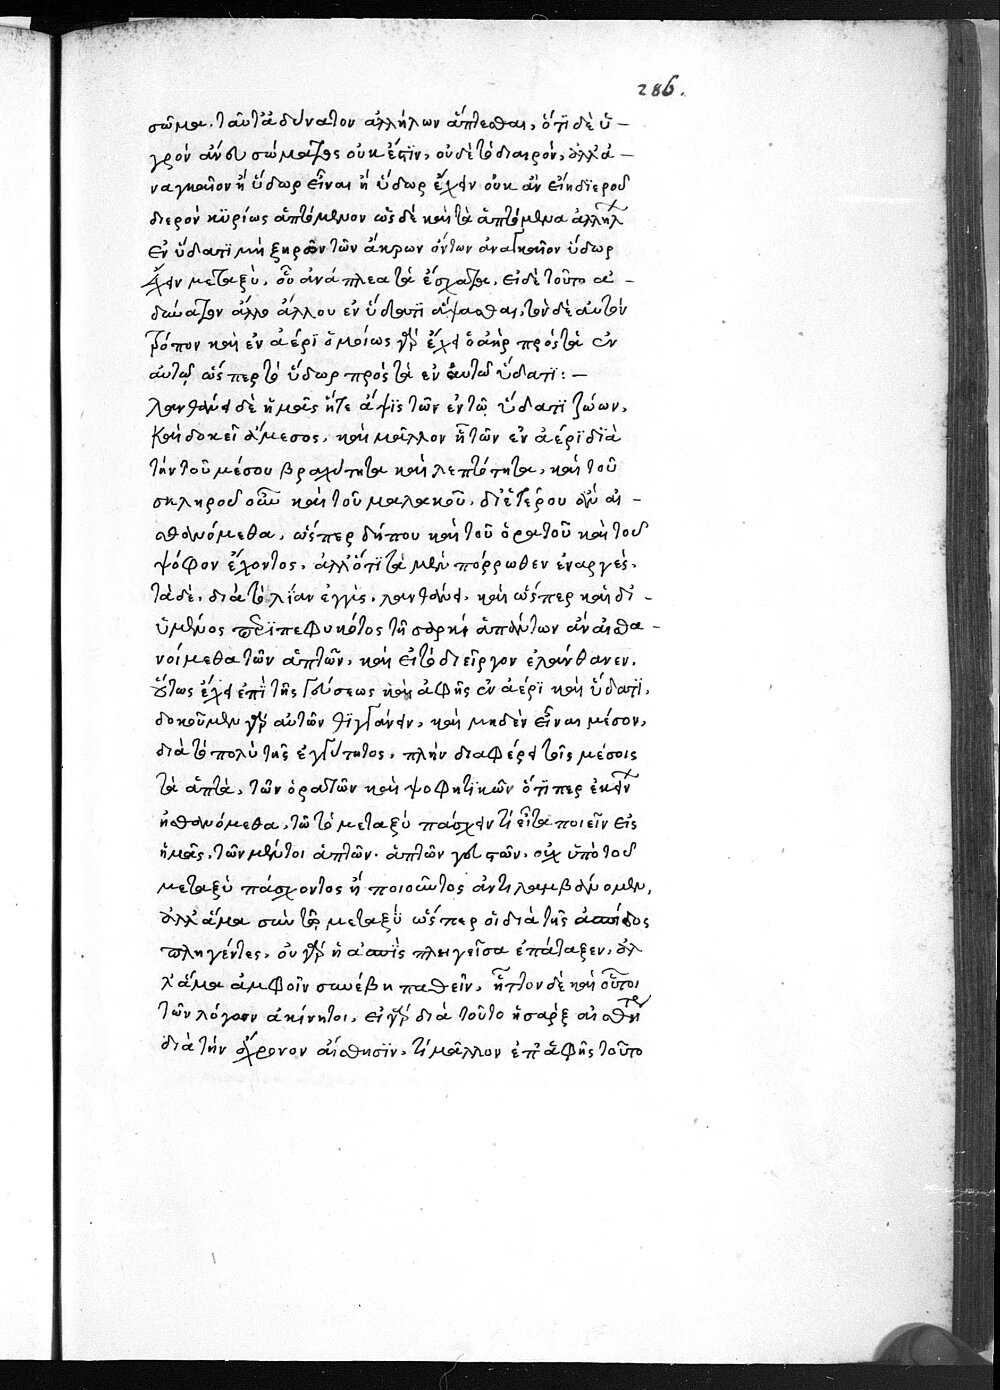 286.
σῶμα. ταῦτ' ἀδύνατον ἀλλήλων ἅπτεσθαι, ὅτι δὲ ὑ–
γρὸν ἄνευ σώματος οὐκ ἔστιν, οὐδὲ τὸ διαιρόν, ἀλλ' ἀ–
ναγκαῖον ἢ ὕδωρ εἶναι ἢ ὕδωρ ἔχειν οὐκ ἂν εἴη διεροῦ
διερὸν κυρίως ἁπτόμενον ὡς δὲ καὶ τὰ ἁπτόμενα ἀλλήλ
ἐν ὕδατι μὴ ξηρῶν τῶν ἄκρων ὄντων ἀναγκαῖον ὕδωρ
ἔχειν μεταξύ, οὗ ἀνάπλεα τὰ ἔσχατα. εἰ δὲ τοῦτο ἀ–
δύνατον ἄλλο ἄλλου ἐν ὕδατι ἅψασθαι, τὸν δὲ αὐτὸν
τρόπον καὶ ἐν ἀέρι ὁμοίως γὰρ ἔχει ὁ ἀὴρ πρὸς τὰ ἐν
αὐτῷ ὥσπερ τὸ ὕδωρ πρὸς τὰ ἐν αὐτῷ ὕδατι :–
λανθάνει δὲ ἡμᾶς ἥτε ἅψις τῶν ἐν τῷ ὕδατι ζώων,
καὶ δοκεῖ ἄμεσος, καὶ μᾶλλον ἢ τῶν ἐν ἀέρι διὰ
τὴν τοῦ μέσου βραχύτητα καὶ λεπτότητα, καὶ τοῦ
σκληροῦ οὖν καὶ τοῦ μαλακοῦ, δι' ἑτέρου οὖν αἰ–
σθανόμεθα, ὥσπερ δήπου καὶ τοῦ ὁρατοῦ καὶ τοῦ
ψόφον ἔχοντος, ἀλλ' ὅτι τὰ μὲν πόρρωθεν ἐναργές,
τὰ δὲ, διὰ τὸ λίαν ἐγγὺς, λανθάνει, καὶ ὥσπερ καὶ δι' –
ὑμένος περιπεφυκότος τῇ σαρκὶ ἁπάντων ἂν αἰσθα –
νοίμεθα τῶν ἁπτῶν, καὶ εἰ τὸ διεῖργον ἐλάνθανεν.
οὕτως ἔχει ἐπὶ τῆς γεύσεως καὶ ἁφῆς ἐν ἀέρι καὶ ὕδατι,
δοκοῦμεν γὰρ αὐτῶν θιγγάνειν, καὶ μηδὲν εἶναι μέσον,
διὰ τὸ πολὺ τῆς ἐγγύτητος. πλὴν διαφέρει τοῖς μέσοις
τὰ ἁπτὰ, τῶν ὁρατῶν καὶ ψοφητικῶν ὅτιπερ ἐκείν
ᾐσθανόμεθα, τῷ τὸ μεταξὺ πάσχειν τι εἶτα ποιεῖν εἰς
ἡμᾶς. τῶν μέντοι ἁπτῶν. οὐχ ὑπὸ τοῦ
μεταξὺ πάσχοντος ἢ ποιοῦντος ἀντιλαμβάνομεν,
ἀλλ' ἅμα σὺν τῷ μεταξὺ ὥσπερ οἱ διὰ τῆς ἀσπίδος
πληγέντες, οὐ γὰρ ἡ ἀσπὶς πληγεῖσα ἐπάταξεν, ἀλ
λ' ἅμα ἀμφοῖν συνέβη παθεῖν, ἧττον δὲ καὶ οὗτοι
τῶν λόγων ἀκίνητοι, εἰ γὰρ διὰ τοῦτο ἡ σὰρξ αἰσθητ
διὰ τὴν ἄχρονον αἴσθησιν, τί μᾶλλον ἐπ' ἁφῆς τοῦτο